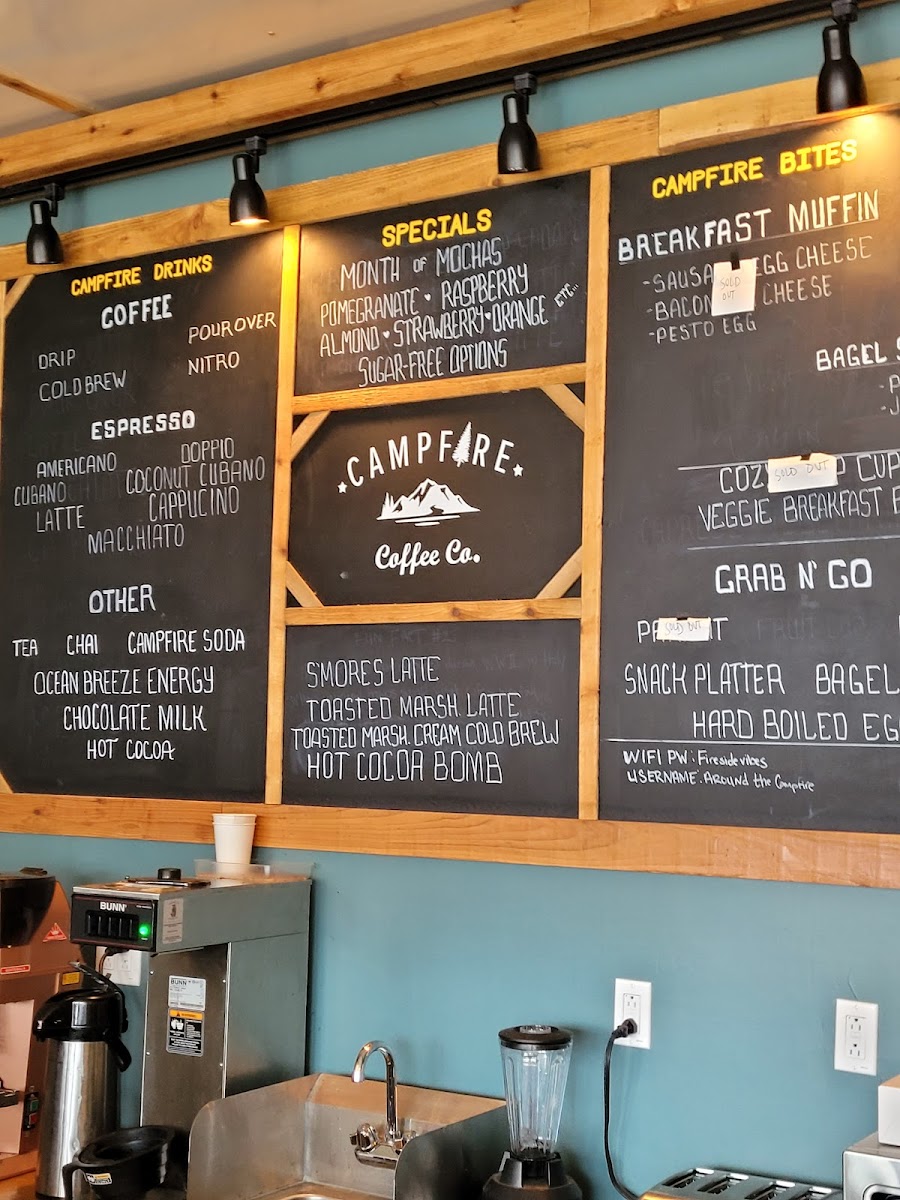 CAMPFIRE DRINKS
COFFEE
DRIP
POUR OVER
COLD BREW
NITRO
ESPRESSO
AMERICANO
DOPPIO
CUBANO
COCONUT CUBANO
LATTE
CAPPUCINO
MACCHIATO
OTHER
TEA CHAI CAMPFIRE SODA
OCEAN BREEZE ENERGY
CHOCOLATE MILK
HOT COCOA
SPECIALS
MONTH OF MOCHAS
POMEGRANATE • RASPBERRY
ALMOND • STRAWBERRY • ORANGE ETC...
SUGAR-FREE OPTIONS
CAMPFIRE
Coffee Co.
S'MORES LATTE
TOASTED MARSH. LATTE
TOASTED MARSH. CREAM COLD BREW
HOT COCOA BOMB
CAMPFIRE BITES
BREAKFAST MUFFIN
-SAUSA EGG CHEESE
SOLD OUT
-BACON CHEESE
-PESTO EGG
BAGEL S
COZY CUP
SOLD OUT
VEGGIE BREAKFAST
GRAB N' GO
SOLD OUT
SNACK PLATTER BAGEL
HARD BOILED EG
WIFI PW: Firesidevibes
USERNAME: Around the Campfire
BUNN
BUNN